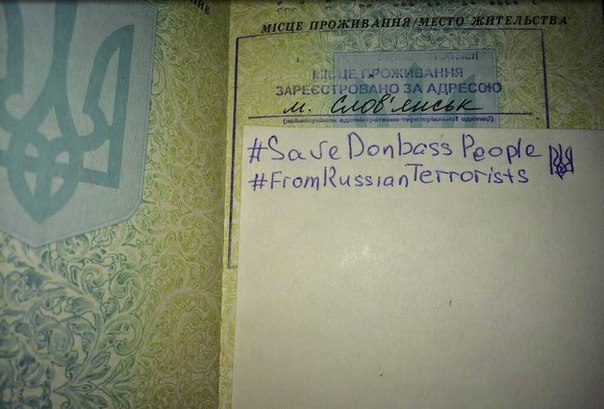 МІСЦЕ ПРОЖИВАННЯ/МЕСТО ЖИТЕЛЬСТВА
МІСЦЕ ПРОЖИВАННЯ
ЗАРЕЄСТРОВАНО ЗА АДРЕСОЮ
м. Слов'янськ
(найменування адміністративно-територіальної одиниці)
#SaveDonbassPeople
#FromRussianTerrorists